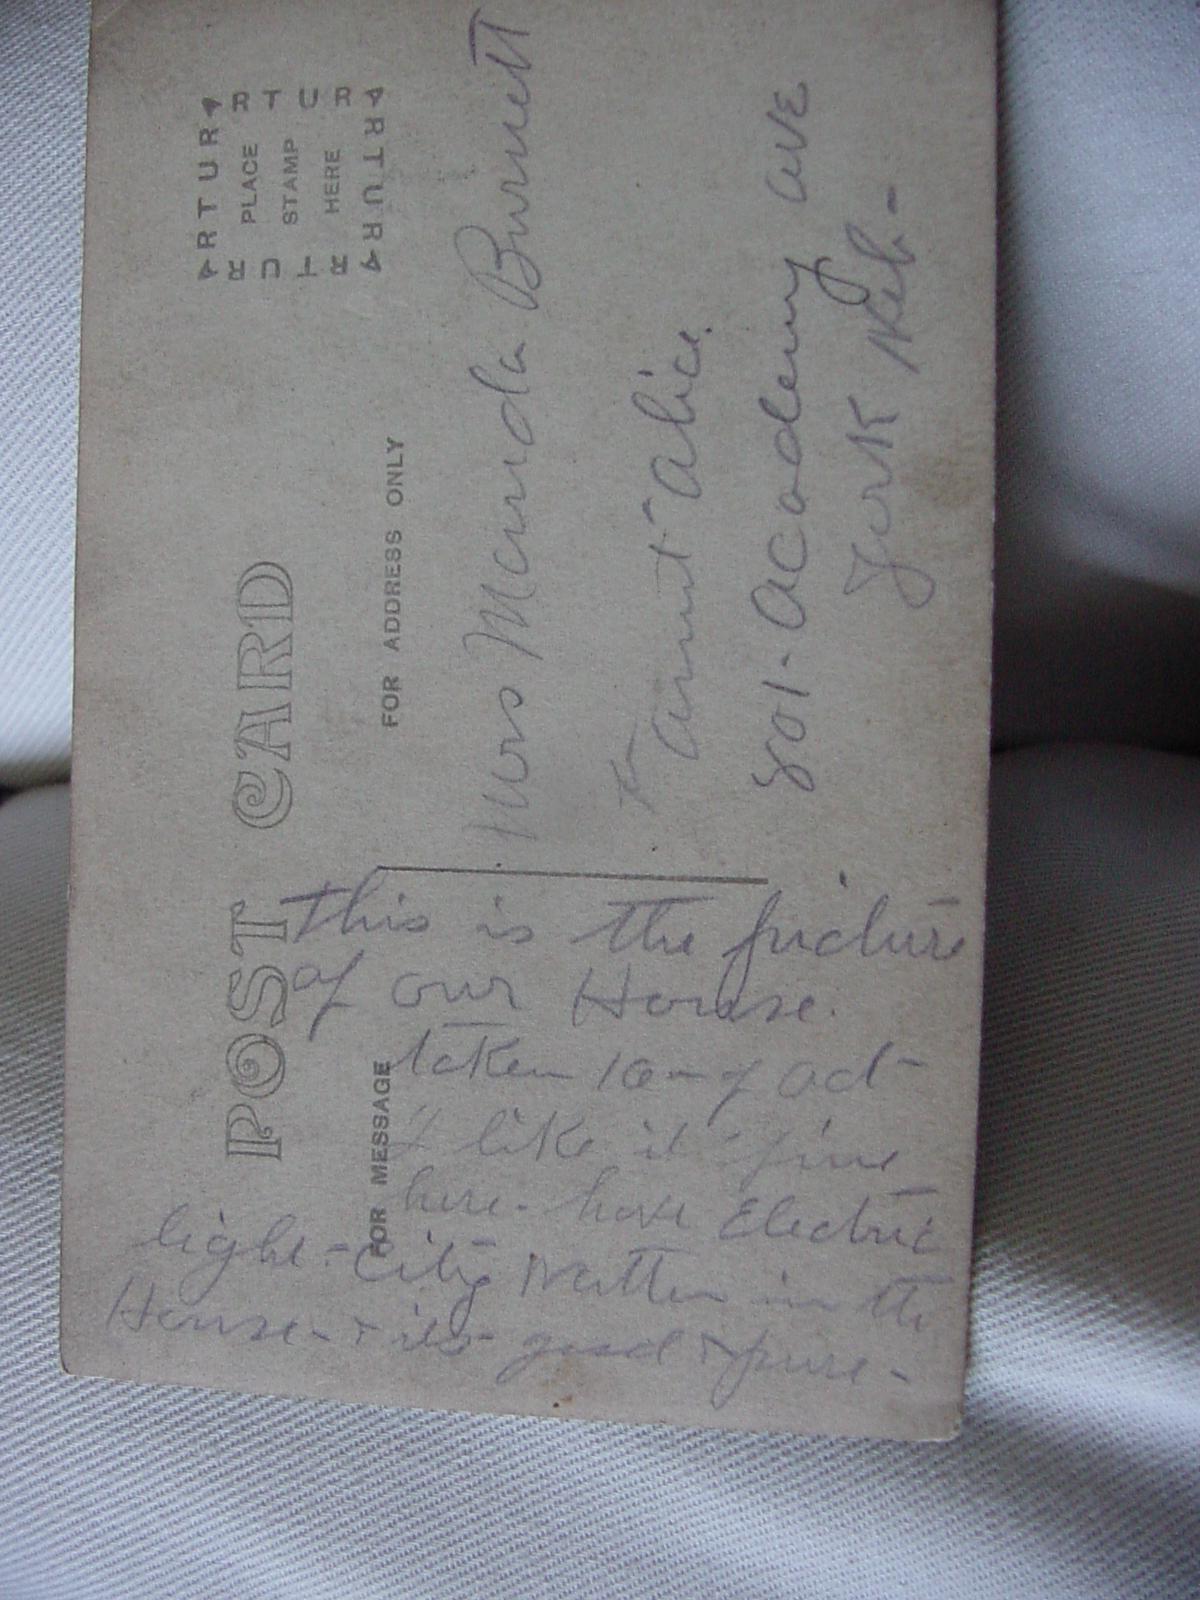 POST CARD
FOR MESSAGE
This is the picture
of our House.
taken 16 - of Oct -
I like it fine
here - have Electric
light - City Watter in the
House - & its good & pure -
FOR ADDRESS ONLY
ARTURA
RTUR
PLACE
STAMP
HERE
ARTURA
RTUR
Mrs Manda Burnett
To
aunt alice.
801 - Academy AVE
York Neb -